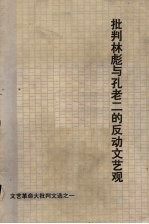 批判林彪与孔老二的反动文艺观
文艺革命大批判文选之一